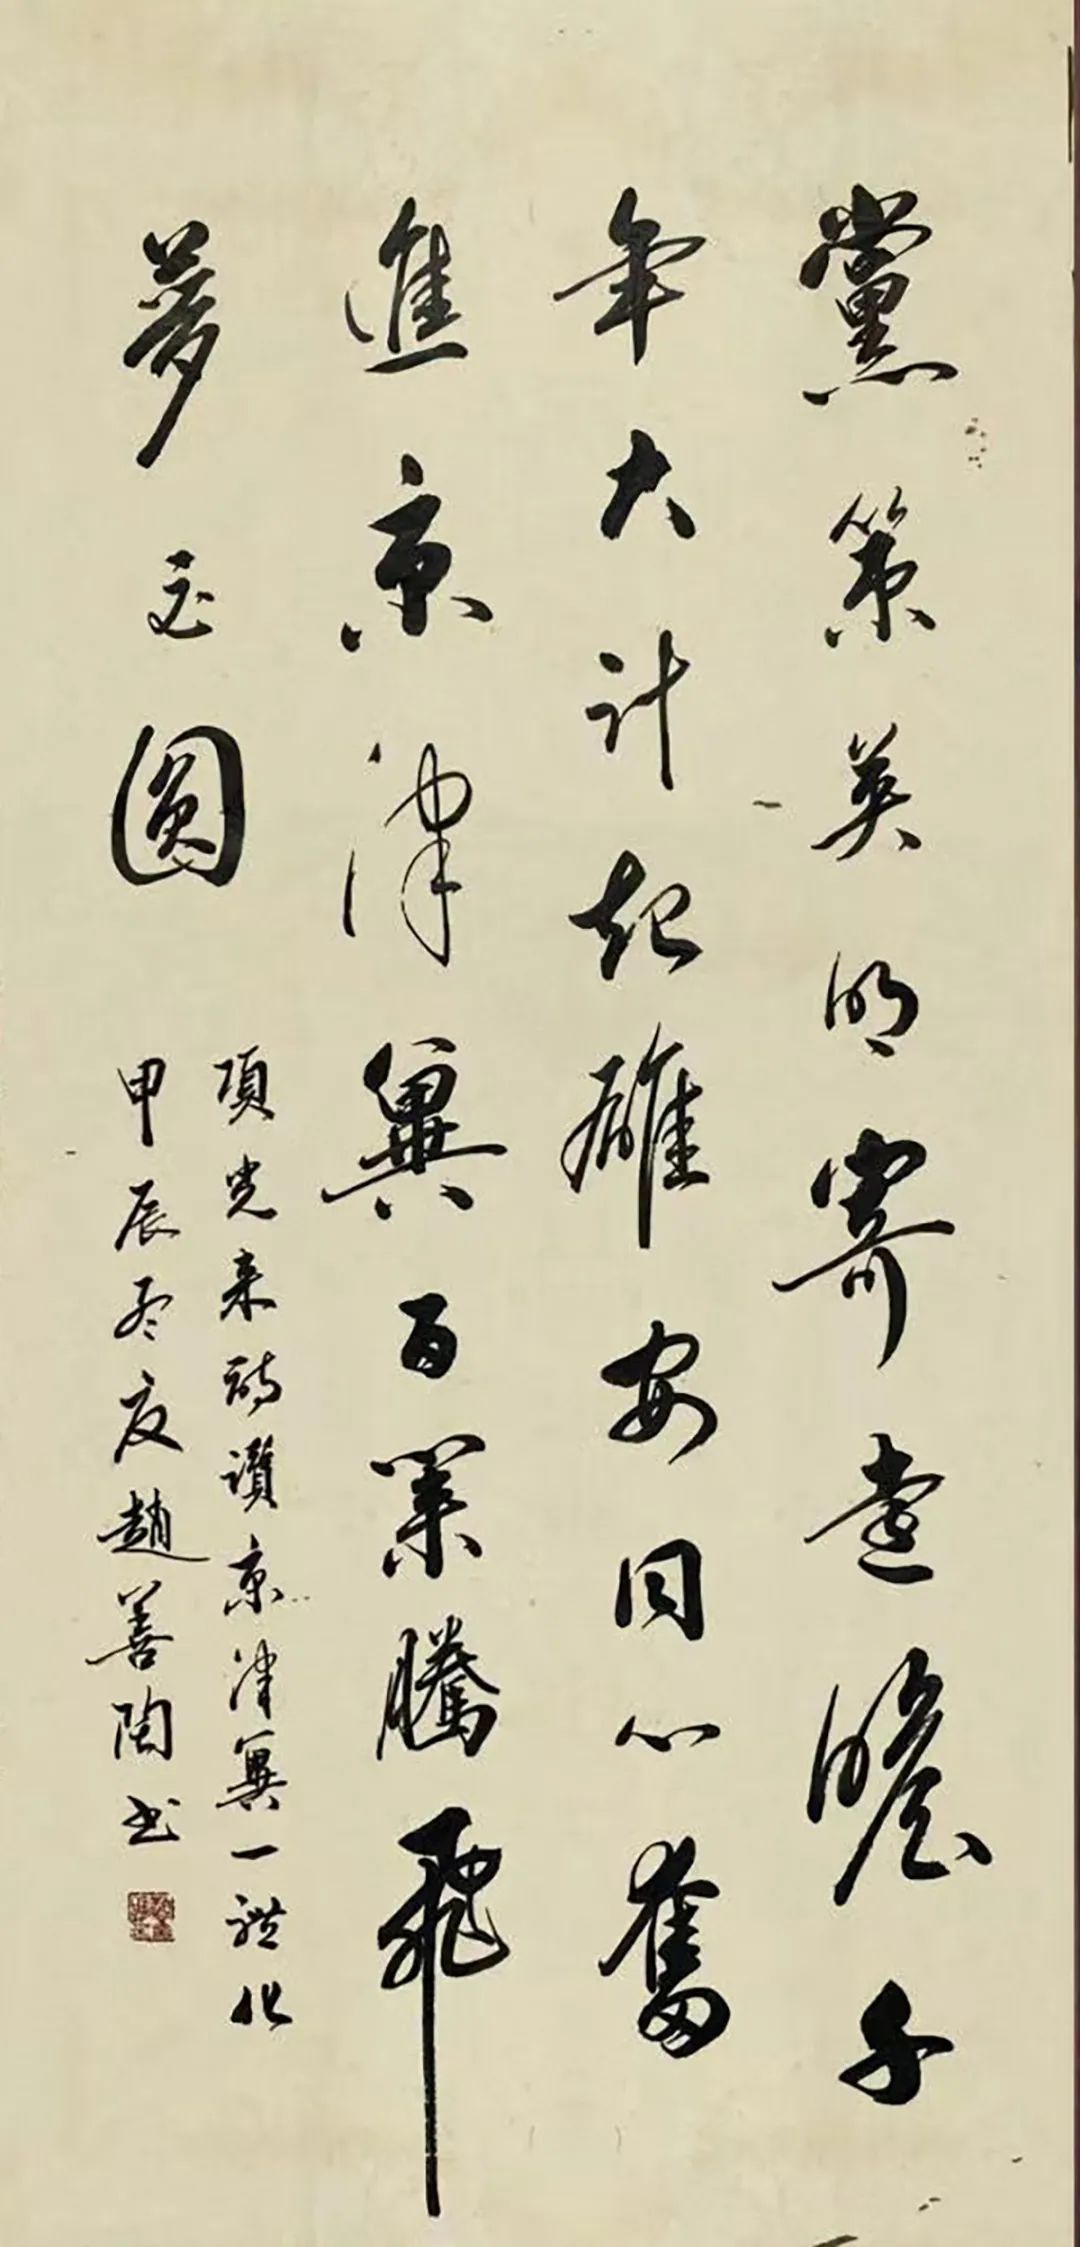 黨策英明寄遠瞻千
年大計起雄安同心奮
進京津冀百業騰飛
夢定圓
項光来詩讚京津冀一體化
甲辰冬趙善陶书